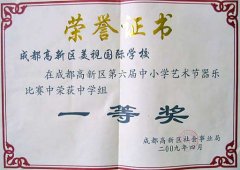 荣誉证书
成都高新区美视国际学校
在成都高新区第六届中小学艺术节器乐
比赛中荣获中学组
一等奖
成都高新区社会事业局
二00九年四月